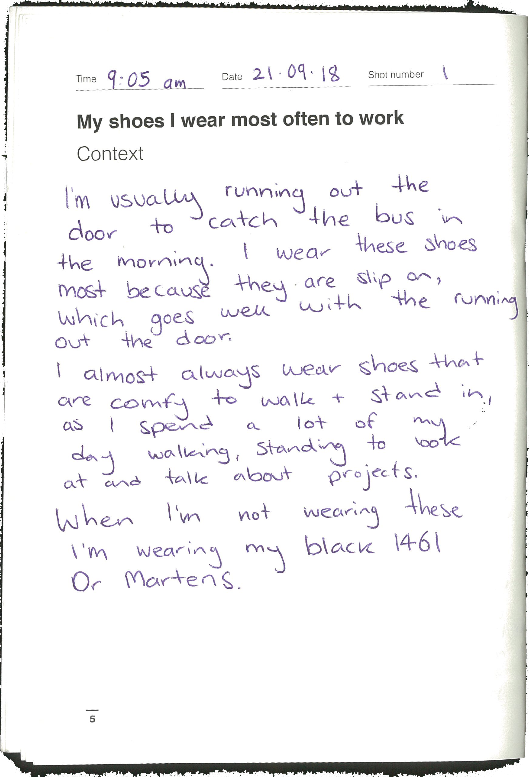 Time 9:05 am Date 21.09.18 Shot number 1
My shoes I wear most often to work
Context
I'm usually running out the
door to catch the bus in
the morning. I wear these shoes
most because they are slip on,
which goes well with the running
out the door.
I almost always wear shoes that
are comfy to walk + stand in,
as I spend a lot of my
day walking, standing to look
at and talk about projects.
When I'm not wearing these
I'm wearing my black 1461
Dr Martens.
5